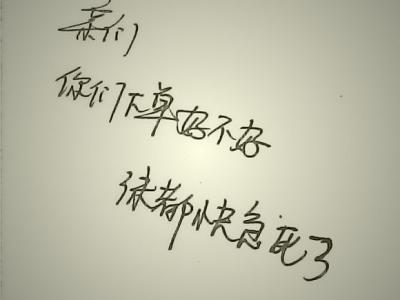 亲们
你们下单好不好
徕都快急死了